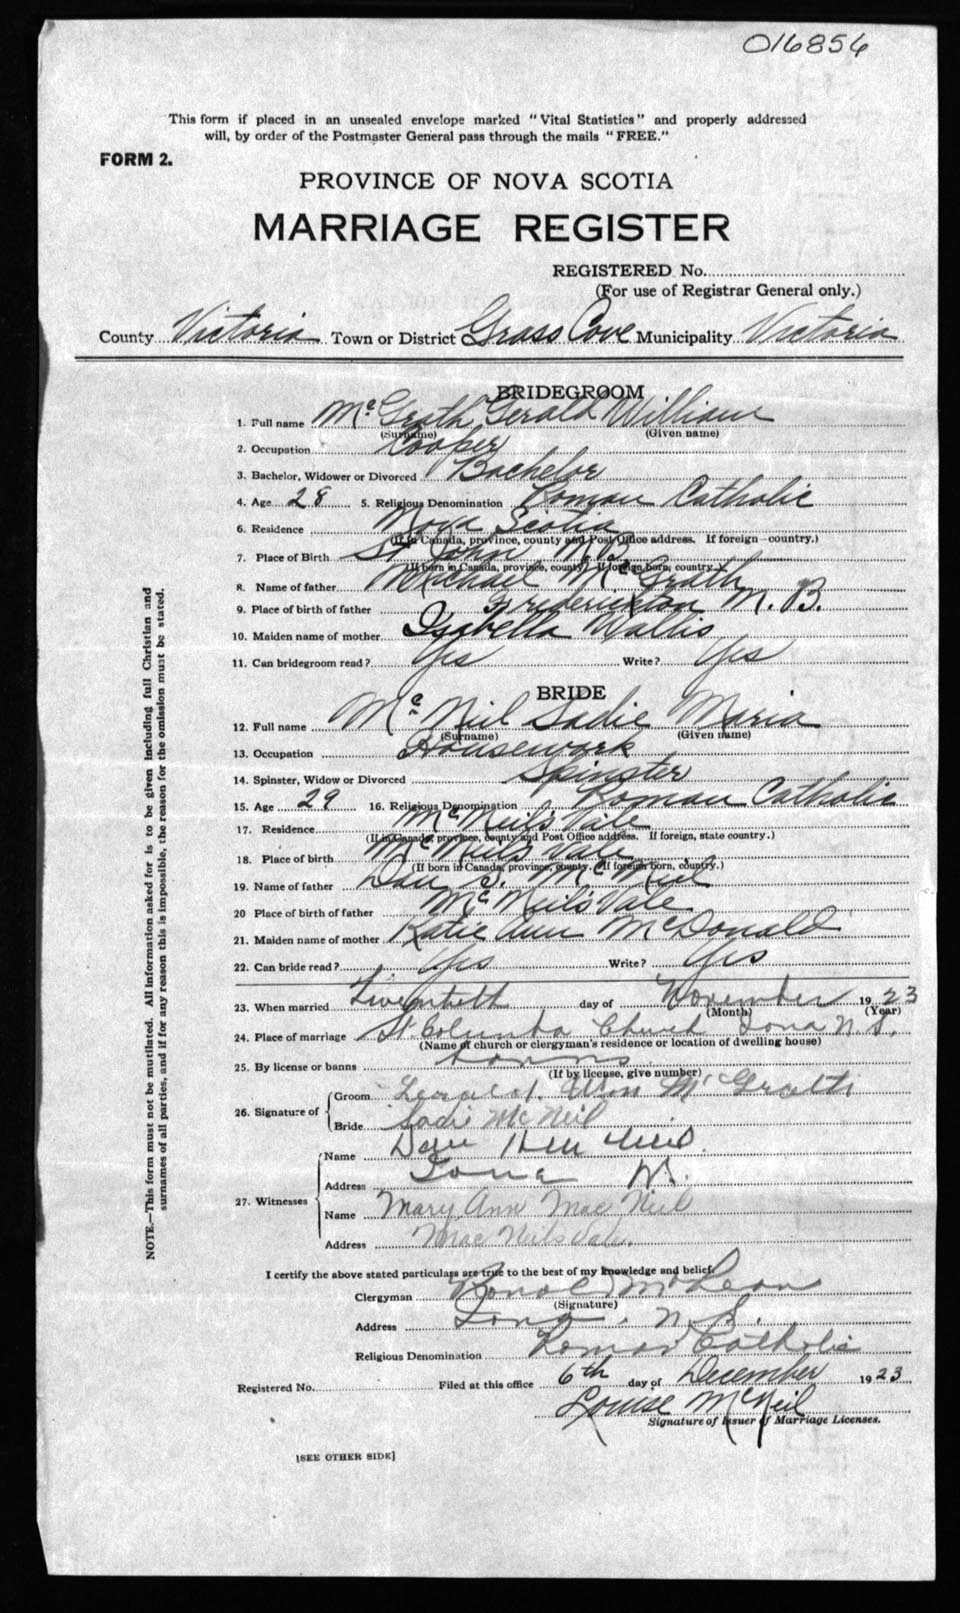 016856
This form if placed in an unsealed envelope marked "Vital Statistics" and properly addressed
will, by order of the Postmaster General pass through the mails "FREE."
FORM 2.
PROVINCE OF NOVA SCOTIA
MARRIAGE REGISTER
REGISTERED No.
(For use of Registrar General only.)
County Victoria Town or District Grass Cove Municipality Victoria
BRIDEGROOM
1. Full name McGrath Gerald William
(Surname) (Given name)
2. Occupation Cooper
3. Bachelor, Widower or Divorced Bachelor
4. Age 28 5. Religious Denomination Roman Catholic
6. Residence Nova Scotia
(If in Canada, province, county and Post Office address. If foreign—country.)
7. Place of Birth St John N.B.
(If born in Canada, province, county. If foreign born, country.)
8. Name of father Michael McGrath
9. Place of birth of father Frederickton N. B.
10. Maiden name of mother Isabella Wallis
11. Can bridegroom read? Yes Write? Yes
BRIDE
12. Full name McNeil Sadie Maria
(Surname) (Given name)
13. Occupation Housework
14. Spinster, Widow or Divorced Spinster
15. Age 29 16. Religious Denomination Roman Catholic
17. Residence McNeil's Vale
(If in Canada, province, county and Post Office address. If foreign, state country.)
18. Place of birth McNeil's Vale
(If born in Canada, province, county. If foreign born, country.)
19. Name of father Dan S. McNeil
20 Place of birth of father McNeil's Vale
21. Maiden name of mother Katie Ann McDonald
22. Can bride read? Yes Write? Yes
23. When married Twentieth day of November 1923
(Month) (Year)
24. Place of marriage St. Columba Church Iona N.S.
(Name of church or clergyman's residence or location of dwelling house)
25. By license or banns banns
(If by license, give number)
26. Signature of Groom Gerald Wm McGrath
Bride Sadie McNeil
27. Witnesses Name Dan
Address Iona N.
Name Mary Ann Mac Neil
Address Mac Neils Vale.
I certify the above stated particulars are true to the best of my knowledge and belief.
Clergyman McLean
(Signature)
Address Iona, N.S.
Religious Denomination Roman Catholic
Registered No. Filed at this office 6th day of December 1923
Louise McNeil
Signature of Issuer of Marriage Licenses.
[SEE OTHER SIDE]
NOTE.—This form must not be mutilated. All information asked for is to be given including full Christian and
surnames of all parties, and if for any reason this is impossible, the reason for the omission must be stated.